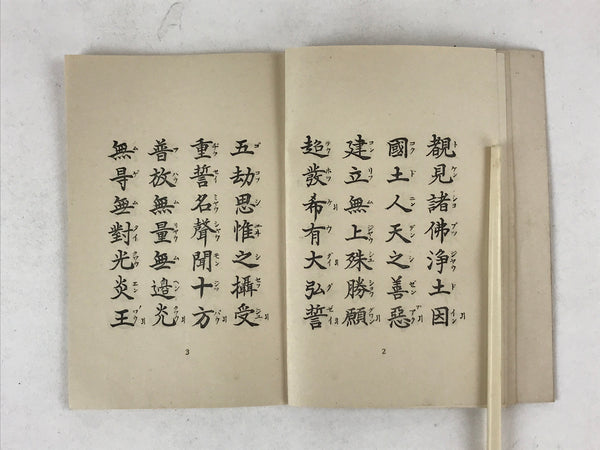 覩見諸佛淨土因
國土人天之善惡
建立無上殊勝願
超發希有大弘誓
2
五劫思惟之攝受
重誓名聲聞十方
普放無量無邊光
無㝵無對光炎王
3